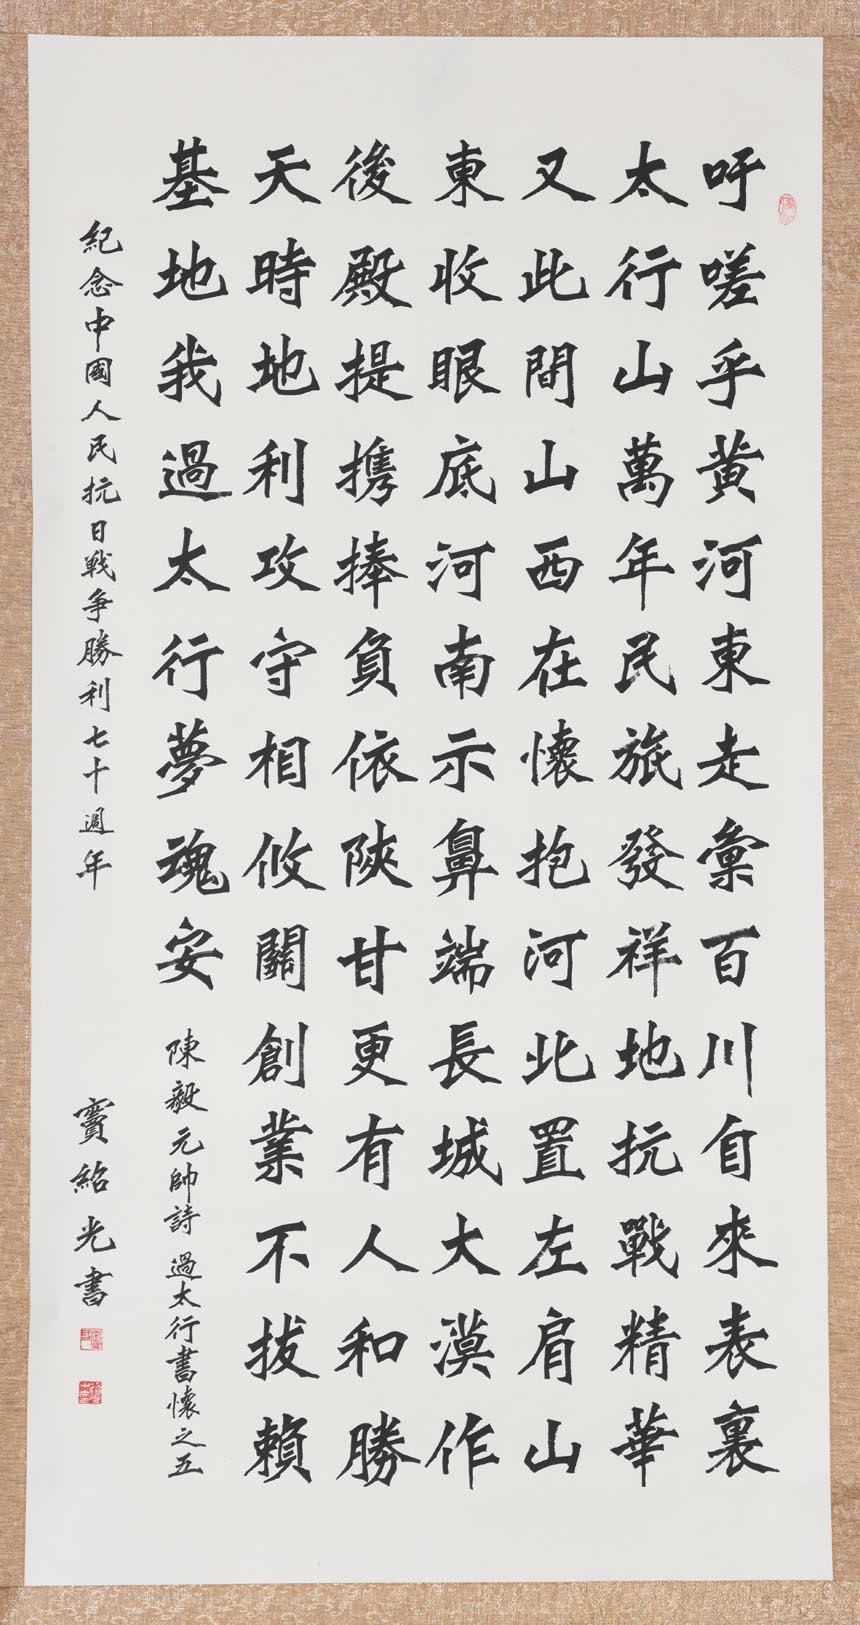 吁嗟乎黄河東走彙百川自來表裏
太行山萬年民旅發祥地抗戰精華
又此間山西在懷抱河北置左肩山
東收眼底河南示鼻端長城大漠作
後殿提携捧負依陝甘更有人和勝
天時地利攻守相攸關創業不拔賴
基地我過太行夢魂安 陳毅元帥詩 過太行書懷之五
紀念中國人民抗日戰爭勝利七十週年 竇紹光書